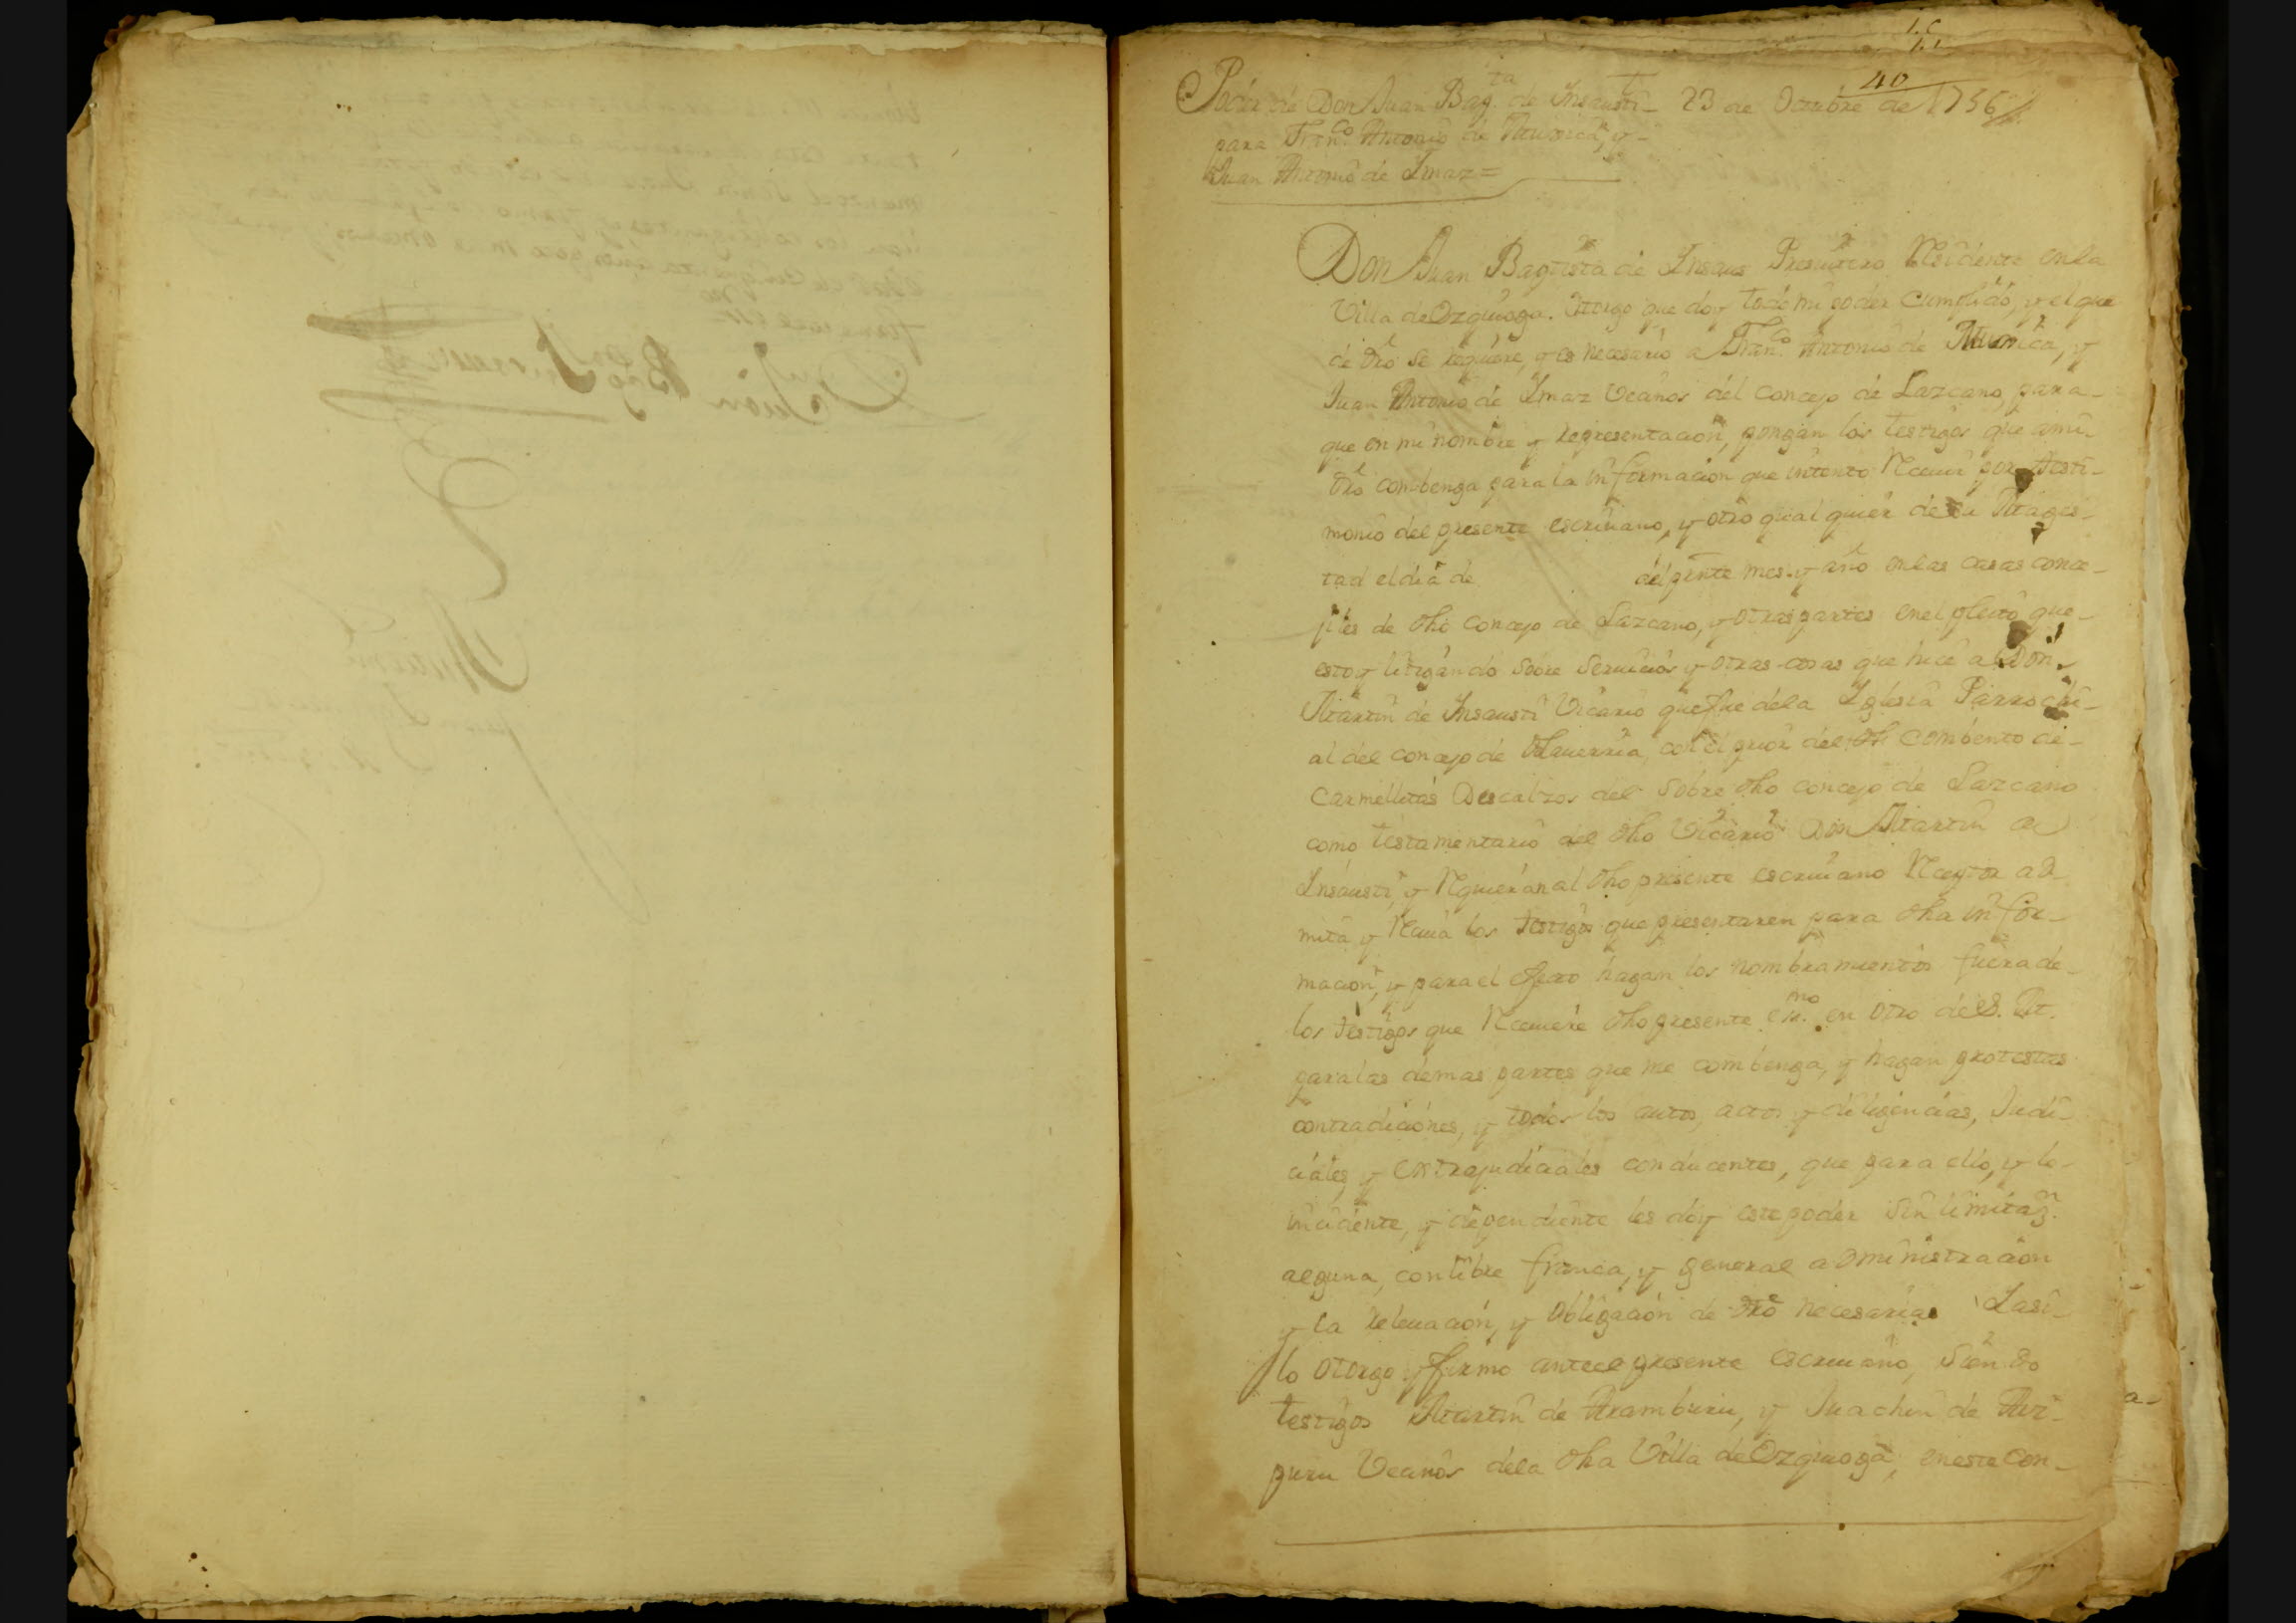 40
Poder de Don Juan Bap.ta de Insausti 23 de Octubre de 1756
para Fran.co Antonio de Muxica, y
Juan Antonio de Imaz =
Don Juan Baptista de Insaus Presuitero Residente en la
Villa de Ozquioga. Otorgo que doy todo mi poder cumplido, y el que
de dro se requiere, y es necesario a Fran.co Antonio de Muxica, y
Juan Antonio de Imaz Vecinos del Concejo de Lazcano, para
que en mi nombre y representacion, pongan los testigos que a mi
dro combenga para la informacion que intento Recivir por testi-
monio del presente escriuano, y otro qualquier de su Mages-
tad el dia de del pnte mes y año en las casas conce-
jiles de dho Concejo de Lazcano, y otras partes en el pleito que
estoy litigando sobre seruicios y otras cosas que hice al Don
Martin de Insausti Vicario que fue de la Iglesia Parrochi-
al del concejo de Olauerria, con el prior del combento de
Carmellitas Descalzos del sobre dho concejo de Lazcano
como testamentario del dho Vicario Don Martin de
Insausti, y Requieran al dho presente escriuano Receptor ad-
mita, y Reciua los testigos que presentaren para dha infor-
macion, y para el efecto hagan los nombramientos fuera de
los testigos que Reciuiere dho presente en otro de S. M.
para las demas partes que me combenga, y hagan protestas
contradiciones, y todos los autos, actos y diligencias, Judi-
ciales, y extrajudiciales conducentes, que para ello, y lo
incidente, y dependiente les doy este poder sin limitaz.on
alguna, con libre franca, y general administracion
y la releuacion, y obligacion de dro necesarias I asi
lo otorgo y firmo ante el presente escriuano, siendo
testigos Martin de Aramburu, y Juachin de Ariz-
puru Vecinos de la dha Villa de Ozquioga, en este Con-